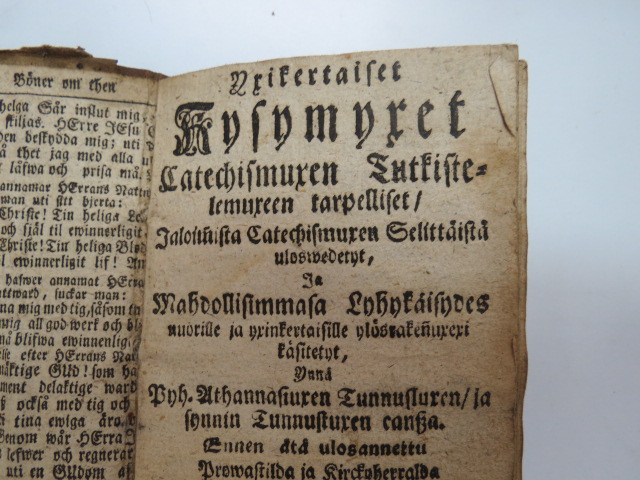 Böner om then
helga Sår inslut mig,
skiljas. HErre JEsu
beskydda mig; uti
thet jag med alla
läfwa och prisa må.
annamar HErrans Nattw
man uti sitt hjerta:
Christe! Tin heliga Le
och själ til ewinnerligit
Christe! Tin heliga Blod
ewinnerligit lif!
hafwer annamat HErra
Nattward, suckar man:
mig med tig, såsom tu
mig all god werk och
blifwa ewinnerlig
efter HErrans Nat
mäktige GUd! som ha
ment delaktige ward
också med tig och
tina ewiga
Genom wår HErra
lefwer och regnerar
uti en GUdom af
Yxikertaiset
Kysymyxet
Catechismuxen Tutkiste-
lemuxeen tarpelliset/
Jaloimista Catechismuxen Selittäistä
uloswedetyt,
Ja
Mahdollisimmasa Lyhykäisydes
nuorille ja yxinkertaisille ylösrakeñuxexi
käsitetyt,
Ynnä
Pyh. Athannasiuxen Tunnusluxen/ ja
synnin Tunnustuxen canßa.
Ennen ätä ulosannettu
Prowastilda ja Kirckoherralda